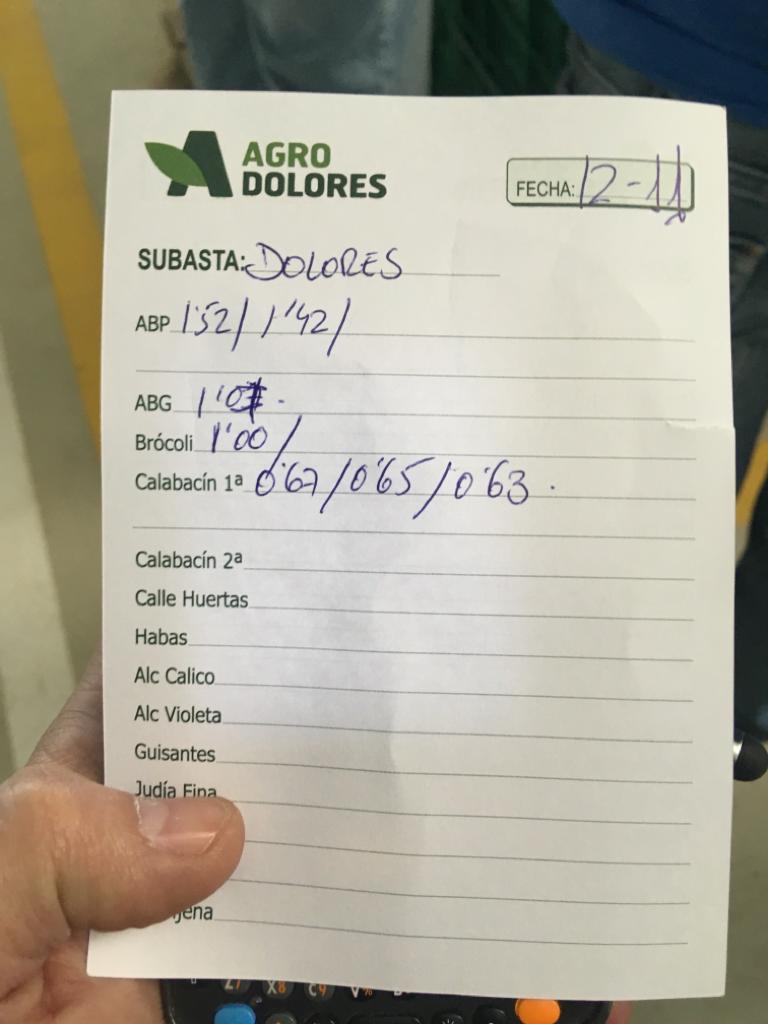 AGRO
DOLORES
FECHA: 12-11
SUBASTA: DOLORES
ABP 1'52/1'42/
ABG
Brócoli 1'00/
Calabacín 1ª 0'67/0'65/0'63.
Calabacín 2ª
Calle Huertas
Habas
Alc Calico
Alc Violeta
Guisantes
Judía Fina